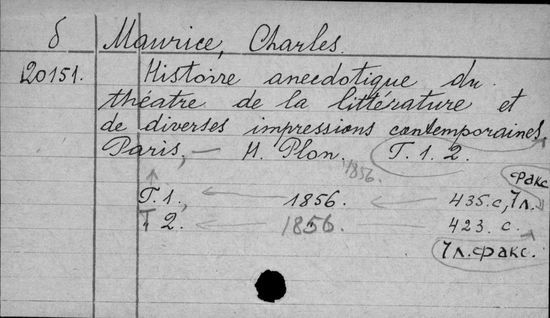 δ Maurice, Charles.
20151. Histoire anecdotique du
théatre de la littérature et
de diverses impressions contemporaines,
Paris, — H. Plon. T. 1. 2.
1856.
факс
T. 1., 1856. 435.с, 7л.
T 2. 1856. 423. с.
7л. факс.